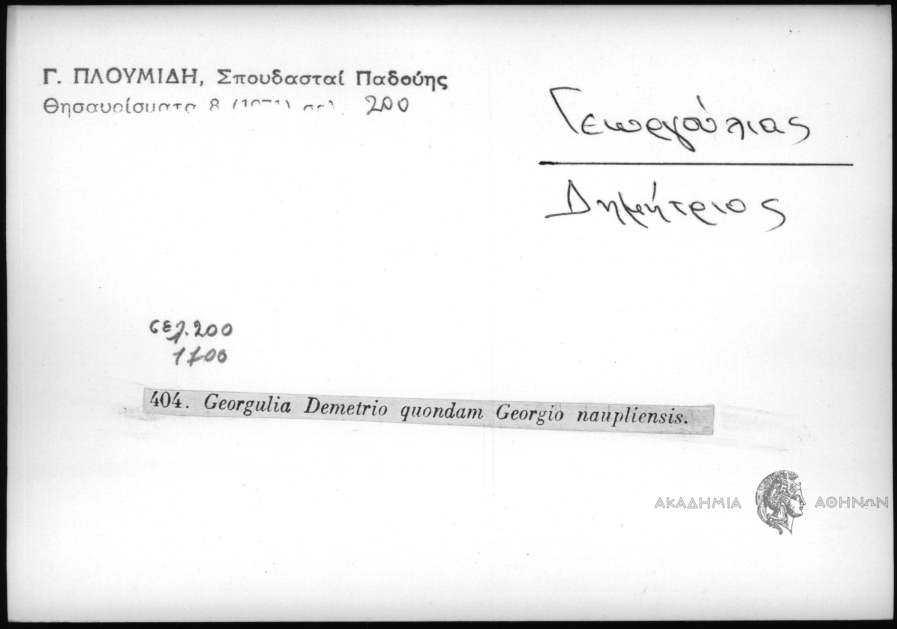 Γ. ΠΛΟΥΜΙΔΗ, Σπουδασταί Παδούης
Θησαυρίσματα 8 (1971) σελ. 200
Γεωργούλιας
Δημήτριος
σελ. 200
1700
404. Georgulia Demetrio quondam Georgio naupliensis.
ΑΚΑΔΗΜΙΑ ΑΘΗΝΩΝ